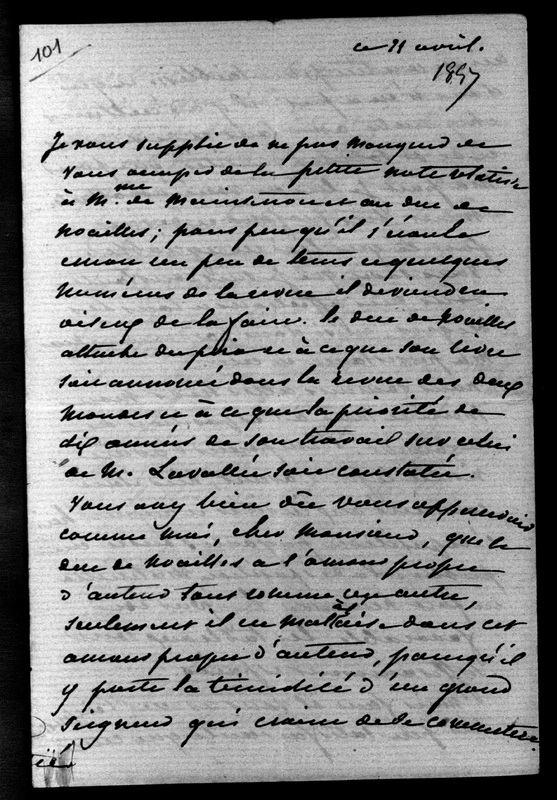 101
ce 21 avril.
1857
Je vous supplie de ne pas manquer de
vous occuper de la petite note relative
à Mme de Maintenon et au duc de
Noailles; pour peu qu'il s'écoule
encor un peu de tems et quelques
numéros de la revue il deviendra
oiseux de la faire. le duc de Noailles
attache du prix et à ce que son livre
soit annoncé dans la revue des deux
mondes et à ce que la priorité de
dix années de son travail sur celui
de M. Lavallée soit constatée.
Vous avez bien dû vous appercevoir
comme moi, cher Monsieur, que le
duc de Noailles a l'amour propre
d'auteur tout comme un autre,
seulement il est mal à l'aise dans cet
amour propre d'auteur, parcequ'il
y porte la timidité d'un grand
seigneur qui craint de se commettre.